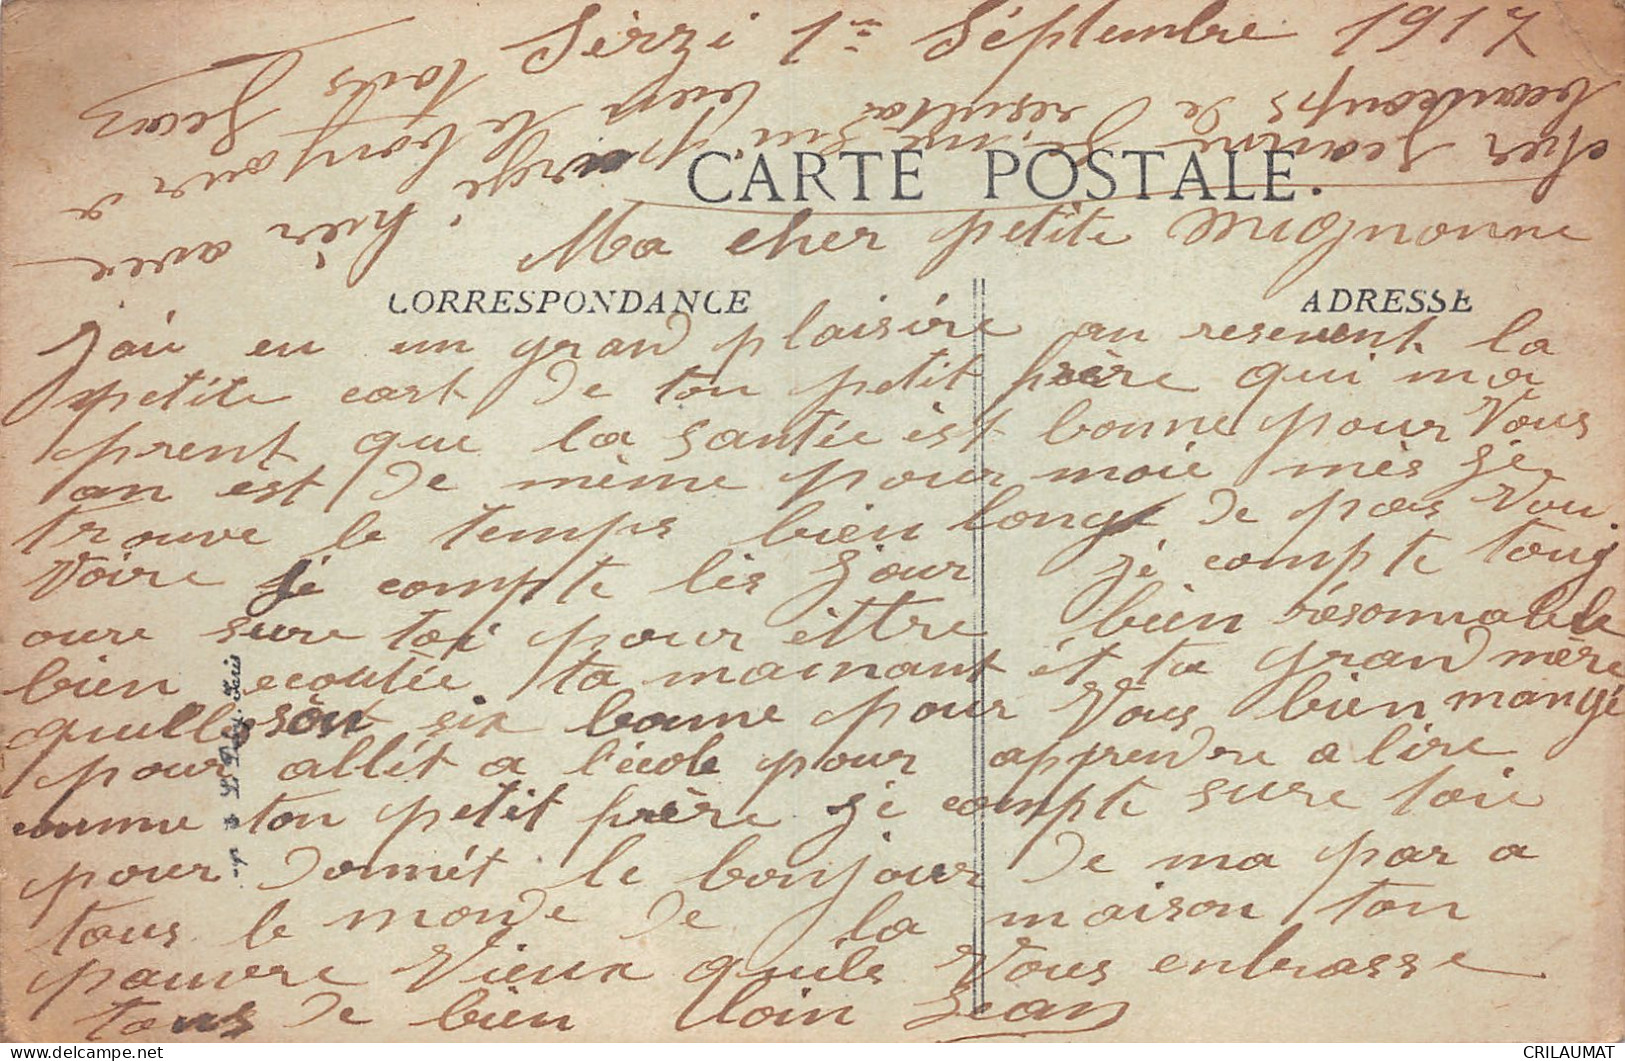 Sèrzi 1er Séptembre 1917
CARTE POSTALE.
Ma cher petite Mignonne
CORRESPONDANCE
ADRESSE
J'ai eu un grand plaisire an resevent la
petite cart de ton petit frère qui ma
prent que la santée est bonne pour Vous
an est de même pour moie mès je
trouve le temps bien long de pas vou
voire je compte lès jour je compte touj
oure sure toi pour èttre bien résonnable
bien ecoutée ta mainant et ta grand mère
quelle soit six bonne pour Vous bien mangé
pour allét a l'école pour apprendre a lire
comme ton petit frère je compte sure toie
pour donnét le bonjour de ma par a
tous le monde de la maison ton
pauvre Vieux quils Vous enbrasse
tous de bien loin Jean
cher Jeanne
beaukoups de
resultat
hièr avec
le bonjour a
tous
Jean